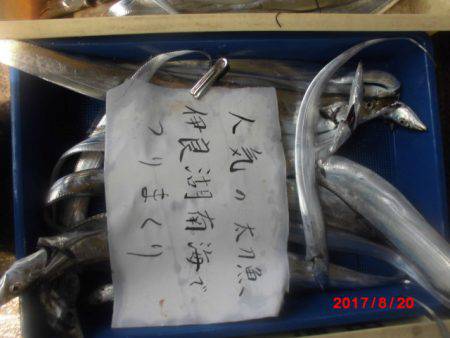 人気の太刀魚
伊良湖南海で
つりまくり
2017/8/20